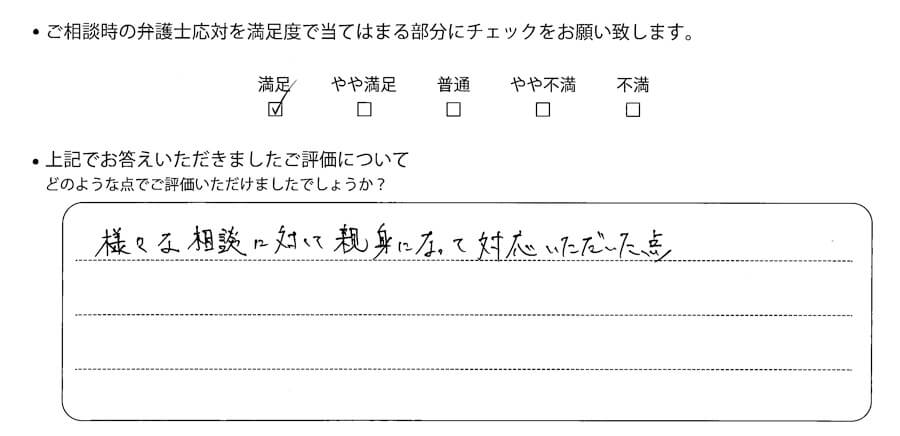 • ご相談時の弁護士応対を満足度で当てはまる部分にチェックをお願い致します。
満足 やや満足 普通 やや不満 不満
☑ ☐ ☐ ☐ ☐
• 上記でお答えいただきましたご評価について
どのような点でご評価いただけましたでしょうか?
様々な相談に対して親身になって対応いただいた点